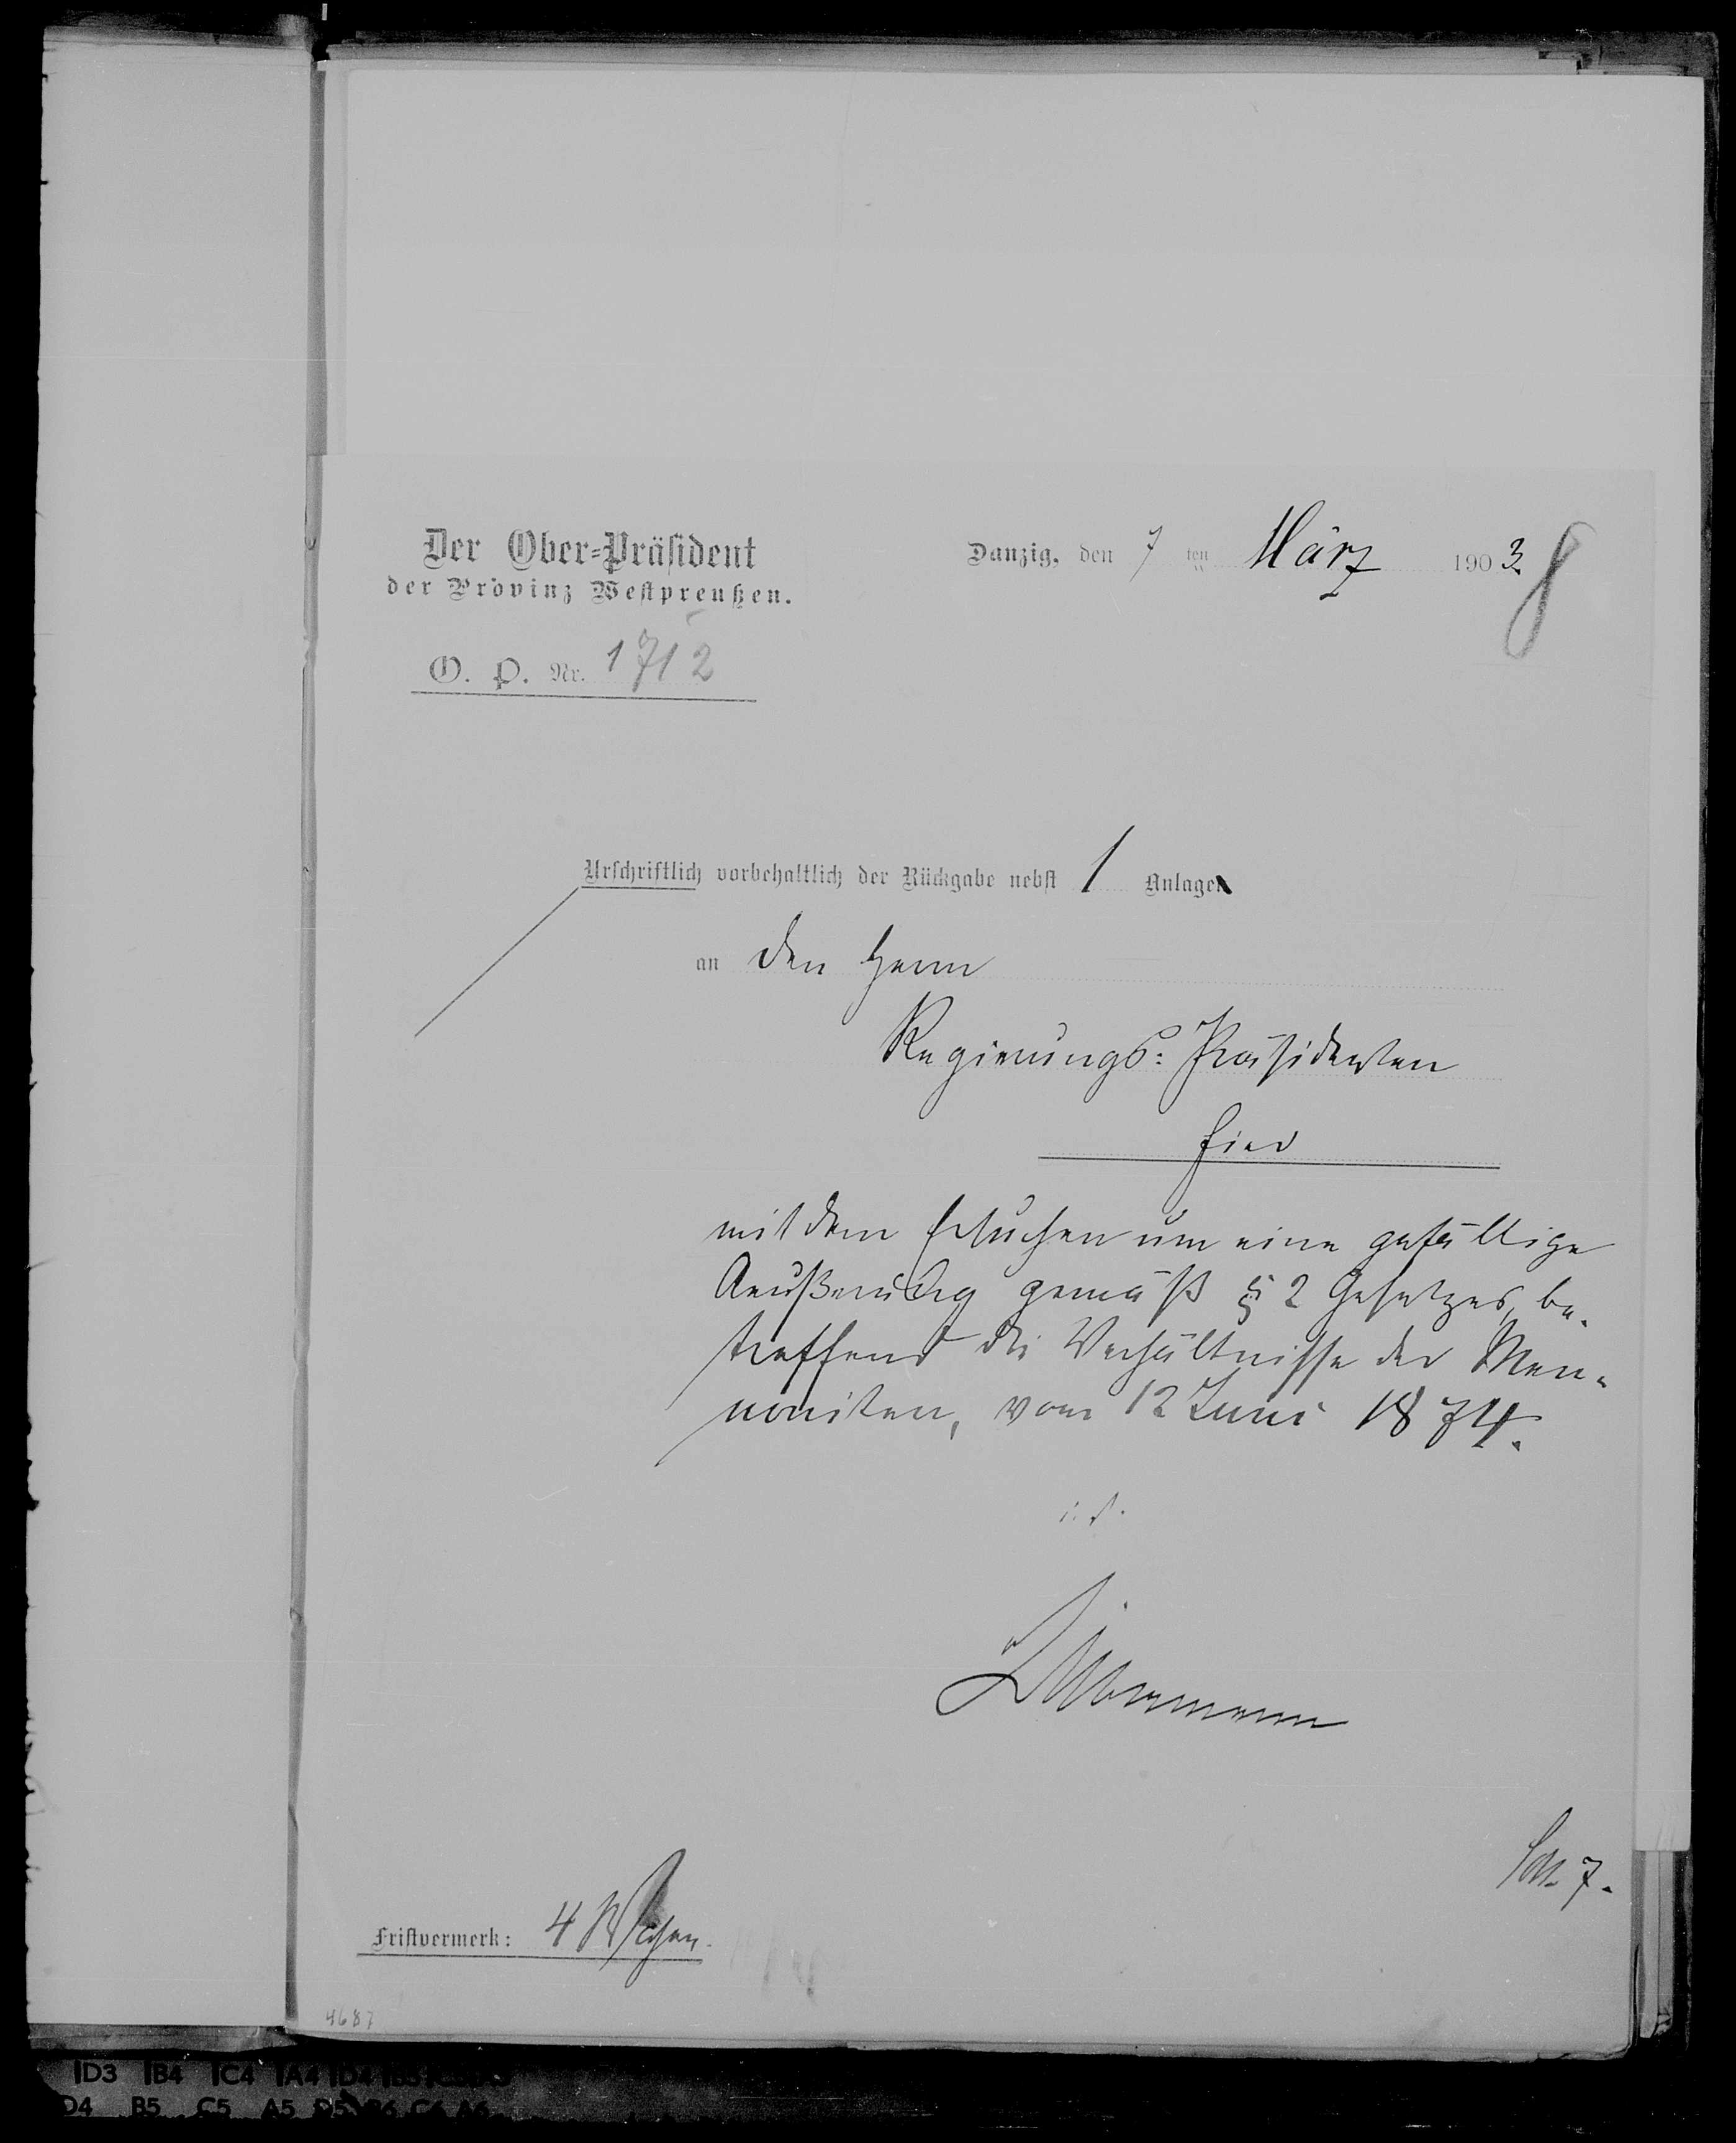 Der Ober=Präsident
der Provinz Westpreußen.
O. P. Nr. 1712
Danzig, den 7 ten März 1903.
Urschriftlich vorbehaltlich der Rückgabe nebst 1 Anlage
an den Herrn
Regierungs=Präsidenten
hier
mit dem Ersuchen um eine gefällige
Aeußerung gemäß § 2 Gesetzes, be-
treffend die Verhältnisse der Men-
noniten, vom 12 Juni 1874.
Fristvermerk: 4 Wochen.
4687
D3 B4 C4 A4 D4
D4 B5 C5 A5